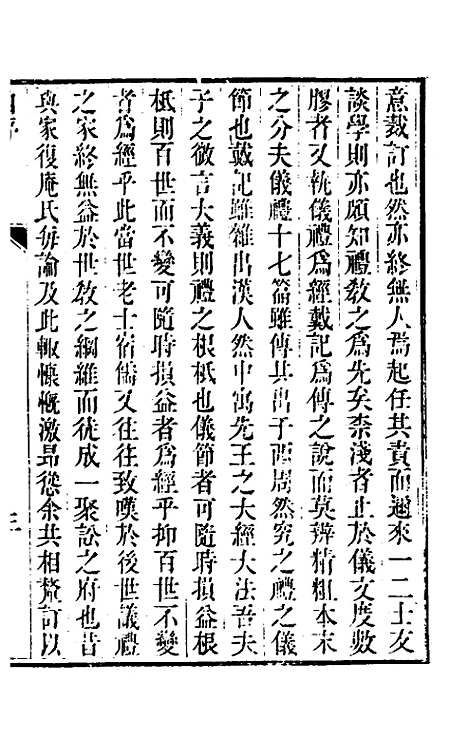 意裁訂也然亦終無人焉起任其責而邇來一二士友
談學則亦頗知禮敎之爲先矣柰淺者止於儀文度數
膠者又執儀禮爲經戴記爲傳之說而莫辨精粗本末
之分夫儀禮十七篇雖傳其出于西周然究之禮之儀
節也戴記雖雜出漢人然中寓先王之大經大法吾夫
子之微言大義則禮之根柢也儀節者可隨時損益根
柢則百世而不變可隨時損益者爲經乎抑百世不變
者爲經乎此當世老士宿儒又往往致嘆於後世議禮
之家終無益於世敎之綱維而徒成一聚訟之府也昔
與家復庵氏每論及此輒慷慨激昂慫余共相釐訂以
三